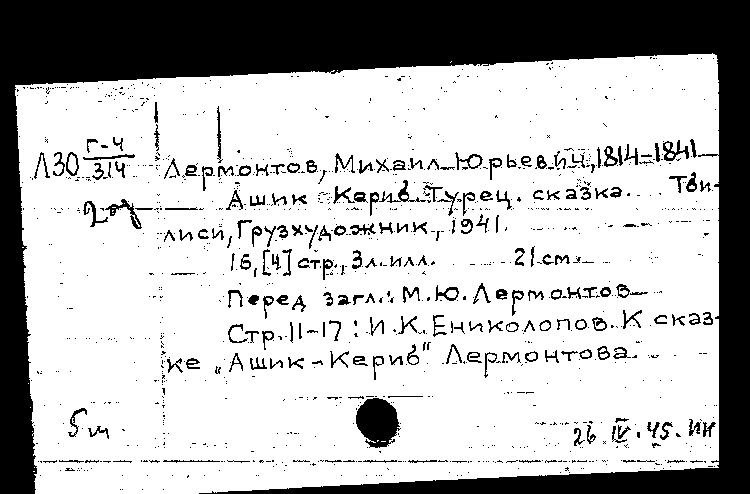 Л30 Г-4/314
Лермонтов, Михаил Юрьевич, 1814-1841
Ашик-Кериб. Турец. сказка. Тби-
лиси, Грузхудожник, 1941.
16, [4] стр., 3 л. илл. 21 см.
Перед загл.: М.Ю. Лермонтов
Стр. 11-17: И.К. Ениколопов. К сказ-
ке „Ашик-Кериб" Лермонтова.
26 IV. 45. ИН